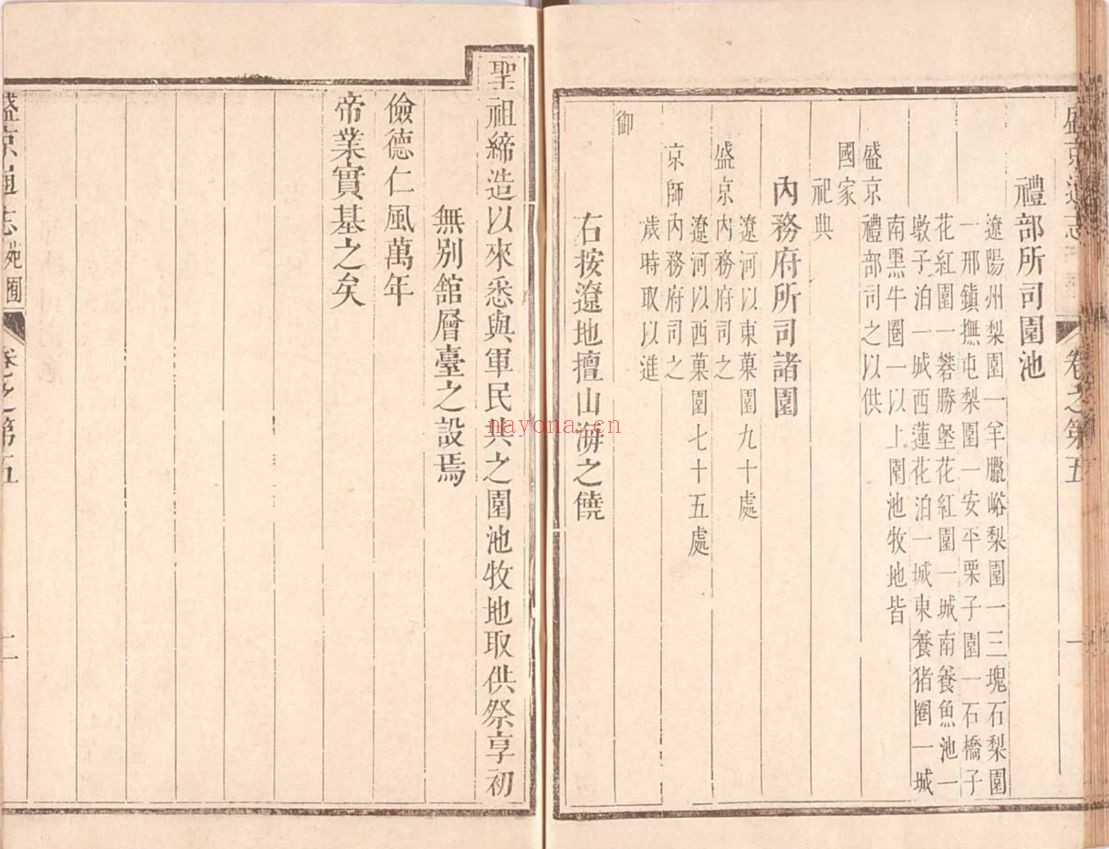 盛京通志
卷之第五
一
禮部所司園池
遼陽州梨園一羊臘峪梨園一三塊石梨園
一邢鎮撫屯梨園一安平栗子園一石橋子
花紅園一礬勝堡花紅園一城南養魚池一
墩子泊一城西蓮花泊一城東養猪圈一城
南黑牛圈一以上園池牧地皆
盛京禮部司之以供
國家
祀典
內務府所司諸園
遼河以東菓園九十處
盛京內務府司之
遼河以西菓園七十五處
京師內務府司之
歲時取以進
御
右按遼地擅山海之饒
聖祖締造以來悉與軍民共之園池牧地取供祭享初
無別館層臺之設焉
儉德仁風萬年
帝業實基之矣
盛京通志
苑囿
卷之第五
二
nayona.cn